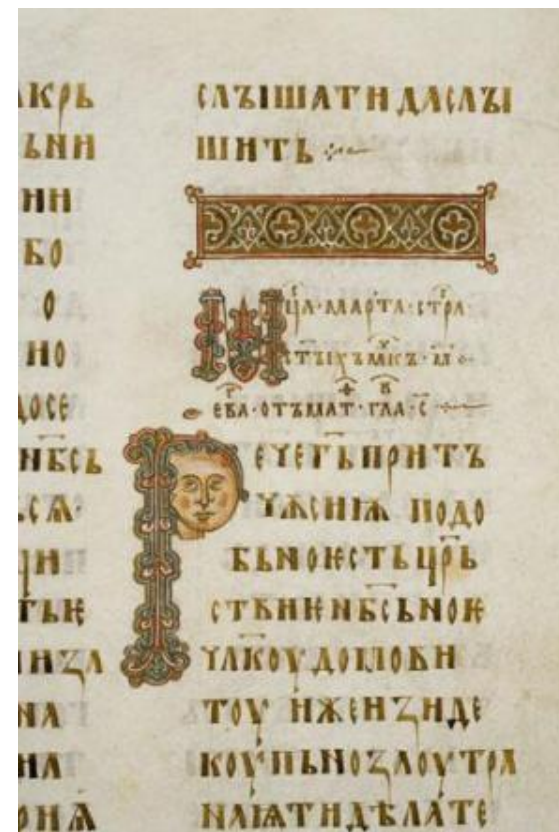 акрь
ьни
ни
бо
о
но
досе
нб҃сь
сѧ·
ци
тьѥ
иꙁа
на
на
слъішати даслъі
шить
мц҃а·марта·стра
ст҃ъіхъмк҃ъ·м҃·
ева·отъмат·гла·с҃
речегь҃притъ
чѫсиѭ подо
бьноѥстьцр҃ь
ствиѥнб҃сьноѥ
чл҃коудомови
тоу ижеиꙁиде
коупьноꙁаоутра
наѩтидѣлате